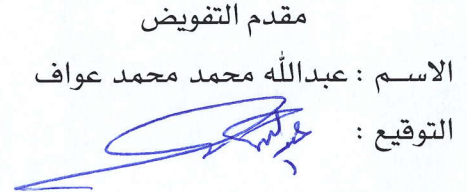 مقدم التفويض
الاســم : عبدالله محمد محمد عواف
التوقيع :